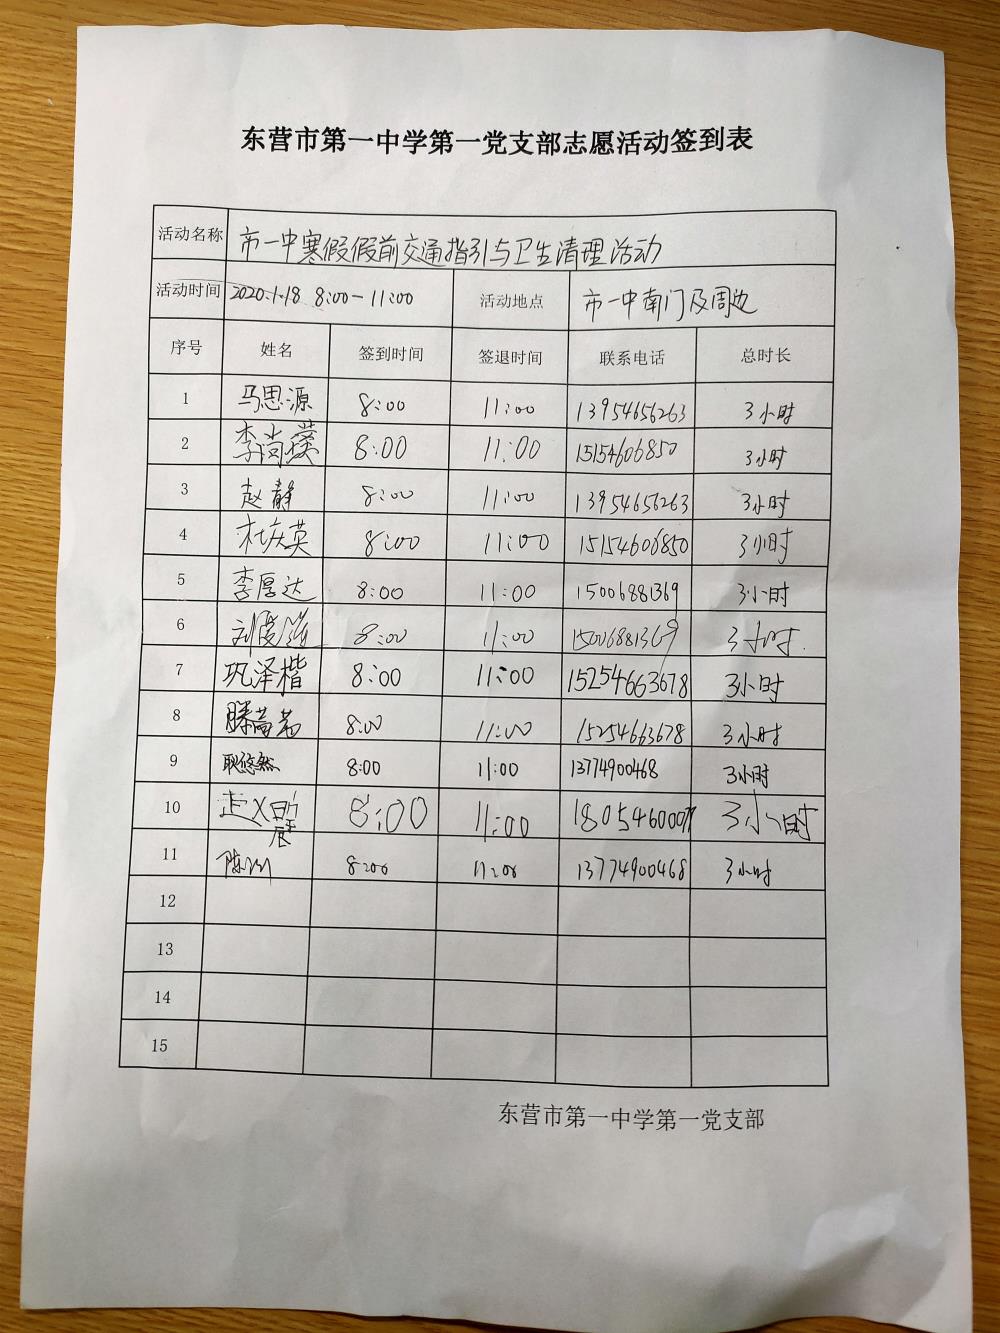 东营市第一中学第一党支部志愿活动签到表
活动名称 市一中寒假假前交通指引与卫生清理活动
活动时间 2020.1.18 8:00-11:00 活动地点 市一中南门及周边
序号 姓名 签到时间 签退时间 联系电话 总时长
1 马思源 8:00 11:00 13954656263 3小时
2 李尚 8:00 11:00 15154606850 3小时
3 赵静 8:00 11:00 13954656263 3小时
4 杜庆英 8:00 11:00 15154606850 3小时
5 李厚达 8:00 11:00 15006881369 3小时
6 8:00 11:00 15006881369 3小时.
7 巩泽楷 8:00 11:00 15254663678 3小时
8 8:00 11:00 15254663678 3小时
9 耿悠然 8:00 11:00 13774900468 3小时
10 8:00 11:00 3小时
11 8:00 11:00 13774900468 3小时
12
13
14
15
东营市第一中学第一党支部